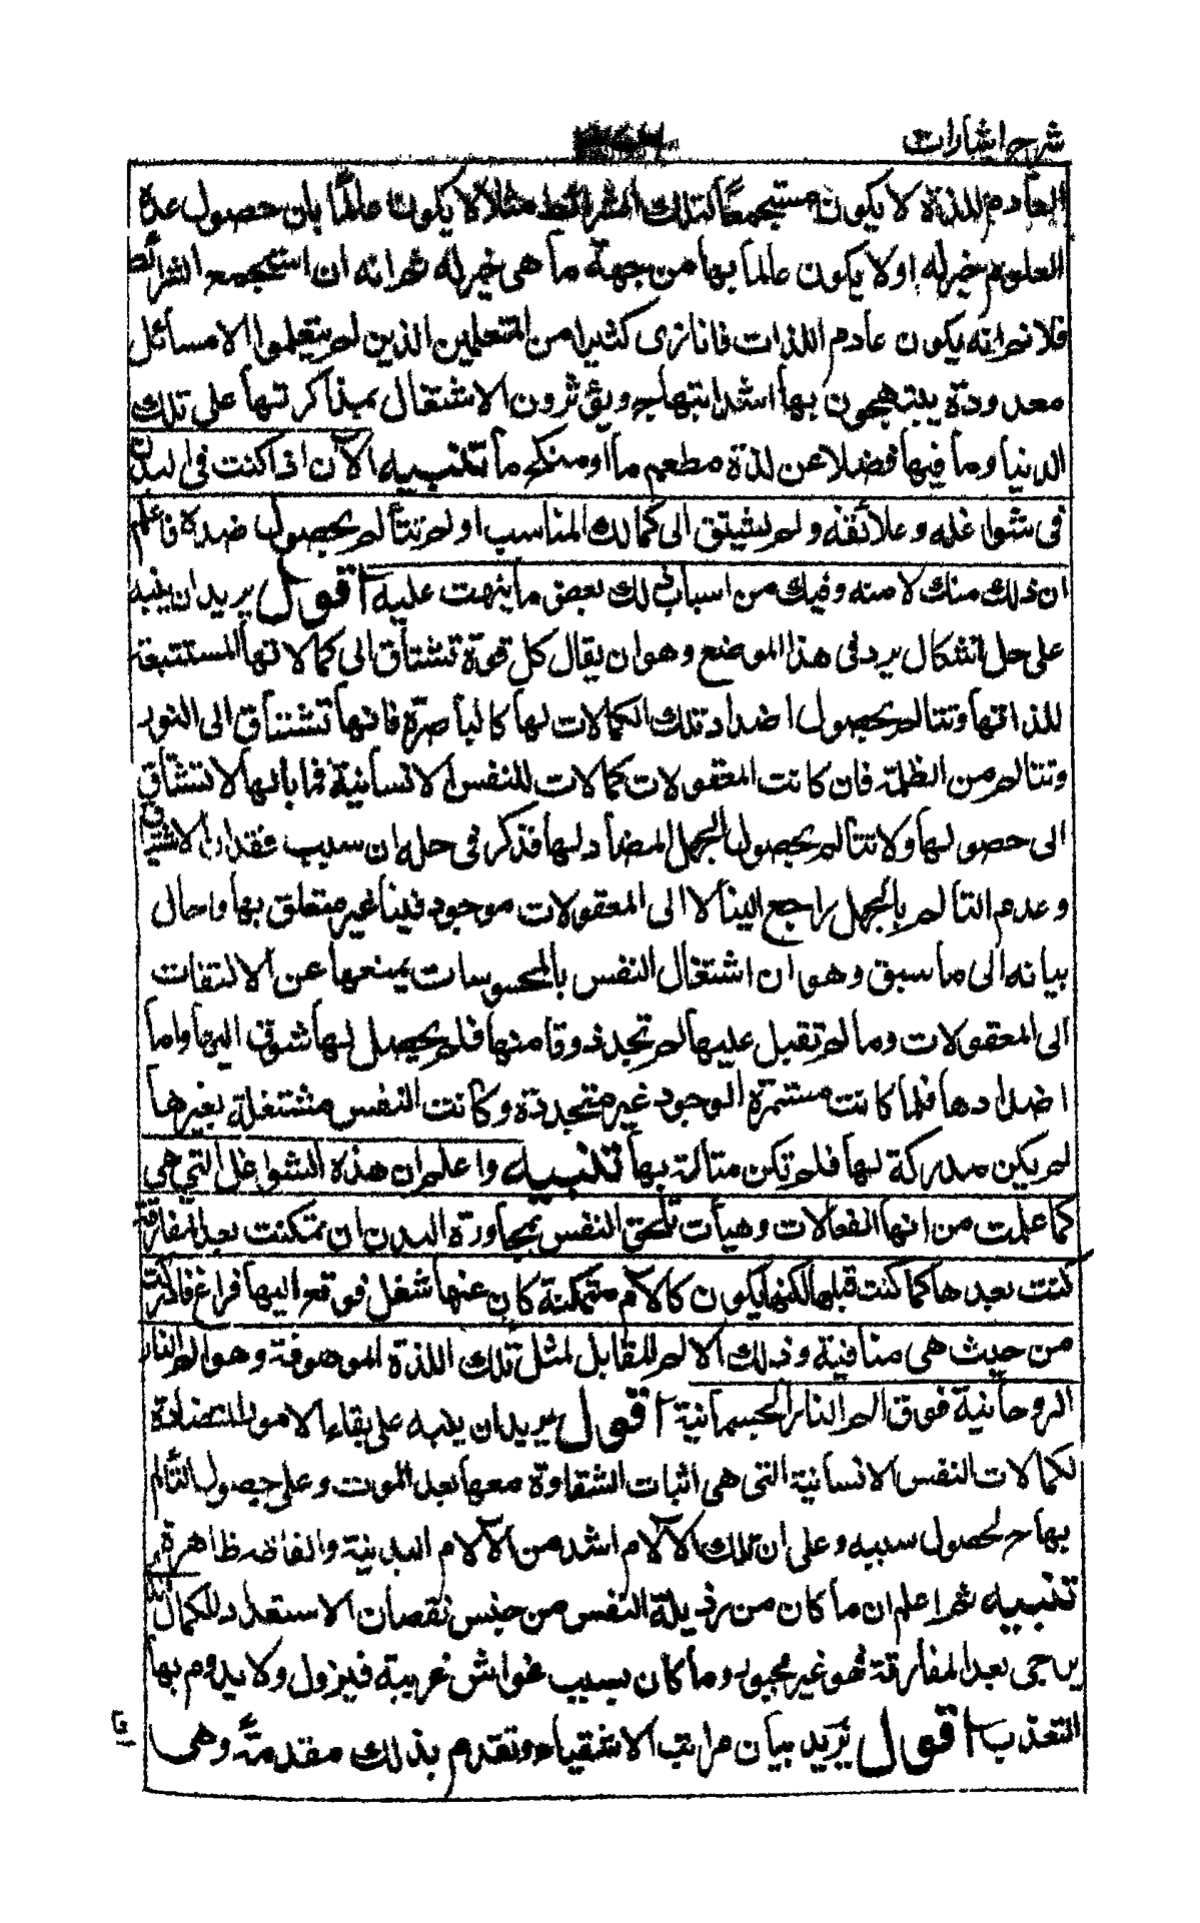 شرح اشارات
العادم للذة لا يكون مستجمعًا لتلك الشرائط مثلا لا يكون عالمًا بان حصول عدة
العلوم خير له اولا يكون عالما بها من جهة ما هى خير له ثم انه ان استجمعه الشرائط
فلا نم انه يكون عادم اللذات فانا نرى كثيرا من المتعلمين الذين لم يتعلموا الا مسائل
معدودة يبتهجون بها اشد ابتهاج ويؤثرون الاشتغال بمذاكرتها على تلك
الدنيا وما فيها فضلا عن لذة مطعم ما او منكح ما تنبيه الآن اذا كنت فى البدن
فى شواغله وعلائقه ولم تشتق الى كمالك المناسب او لم تتألم بحصول ضده فاعلم
ان ذلك منك لا منه وفيك من اسباب ذلك بعض ما نبهت عليه اقول يريد ان ينبه
على حل اشكال يرد فى هذا الموضع وهو ان يقال كل قوة تشتاق الى كمالاتها المستتبعة
للذاتها وتتالم بحصول اضداد تلك الكمالات لها كالباصرة فانها تشتاق الى النور
وتتالم من الظلمة فان كانت المعقولات كمالات للنفس الانسانية فما بالها لا تشتاق
الى حصولها ولا تتالم بحصول الجهل المضاد لها فذكر فى حله ان سبب فقدان الاشتياق
وعدم التالم بالجهل راجع الينا لا الى المعقولات موجود فينا غير متعلق بها واحال
بيانه الى ما سبق وهو ان اشتغال النفس بالمحسوسات يمنعها عن الالتفات
الى المعقولات وما لم تقبل عليها لم تجد ذوقا منها فلم يحصل لها شوق اليها واما
اضدادها فلما كانت مستمرة الوجود غير متجددة وكانت النفس مشتغلة بغيرها
لم يكن مدركة لها فلم تكن متالمة بها تنبيه واعلم ان هذه الشواغل التي هي
كما علمت من انها انفعالات وهيأت تلحق النفس بمجاورة البدن ان تمكنت بعد المفارقة
كنت بعدها كما كنت قبلها لكنها يكون كآلام متمكنة كان عنها شغل فوقع اليها فراغ فادركت
من حيث هى منافية وذلك الالم المقابل لمثل تلك اللذة الموصوفة وهو الم النار
الروحانية فوق الم النار الجسمانية اقول يريد ان ينبه على بقاء الامور المتضادة
لكمالات النفس الانسانية التى هى اثبات الشقاوة معها بعد الموت وعلى حصول التألم
بها ح لحصول سببه وعلى ان تلك الآلام اشد من الآلام البدنية والفاظه ظاهرة
تنبيه ثم اعلم ان ما كان من رذيلة النفس من جنس نقصان الاستعداد للكمال الذى
يرجى بعد المفارقة فهو غير مجبور وما كان بسبب غواش غريبة فيزول ولا يدوم بها
التعذب اقول يريد بيان مراتب الاشقياء وتقدم بذلك مقدمة وهى